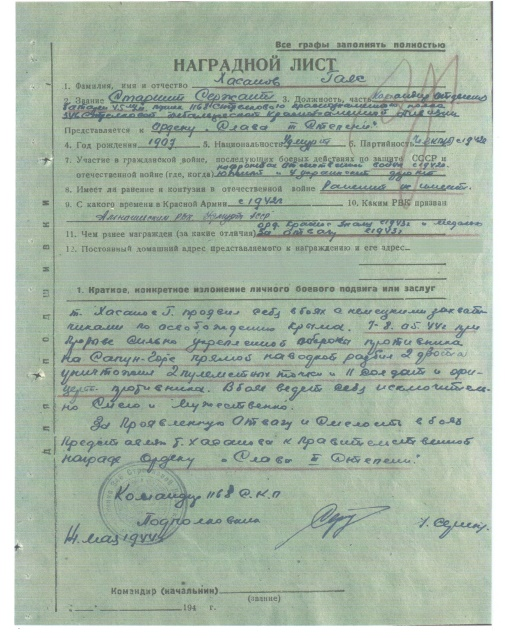 Все графы заполнять полностью
НАГРАДНОЙ ЛИСТ
1. Фамилия, имя и отчество Хасанов Гаяс
2. Звание Старший Сержант 3. Должность, часть Командир отделения
батареи 45-мм пушек 1168 стрелкового краснознаменного полка
346 стрелковой краснознаменной дивизии
Представляется к Ордену "Слава III Степени"
4. Год рождения 1907 5. Национальность Удмурт 6. Партийность с 1942г
7. Участие в гражданской войне, последующих боевых действиях по защите СССР и
отечественной войне (где, когда) Южный и 4 украинский фронт
8. Имеет ли ранения и контузии в отечественной войне Ранений не имеет.
9. С какого времени в Красной Армии с 1942г 10. Каким РВК призван
РВК Удмурт АССР
11. Чем ранее награжден (за какие отличия) орд. Красная Звезда с 1943г и Медаль
За отвагу с 1943г
12. Постоянный домашний адрес представляемого к награждению и его адрес
1. Краткое, конкретное изложение личного боевого подвига или заслуг
т. Хасанов Г. проявил себя в боях с немецкими захват-
чиками по освобождению Крыма. 7-8.05.44г при
Прорыве Сильно укрепленной обороны противника
на Сапун-Горе прямой наводкой разбил 2
уничтожил 2 пулеметных точки и 11 Солдат и офи-
церов противника. В бою ведет себя исключитель-
но Смело и Мужественно.
За Проявленную Отвагу и Смелость в боях
Представляем т. Хасанова к Правительственной
награде Ордену "Слава III Степени"
Командир 1168 С.К.П
Подполковник
мая 1944г
Командир (начальник)
(звание)
194 г.
для подшивки